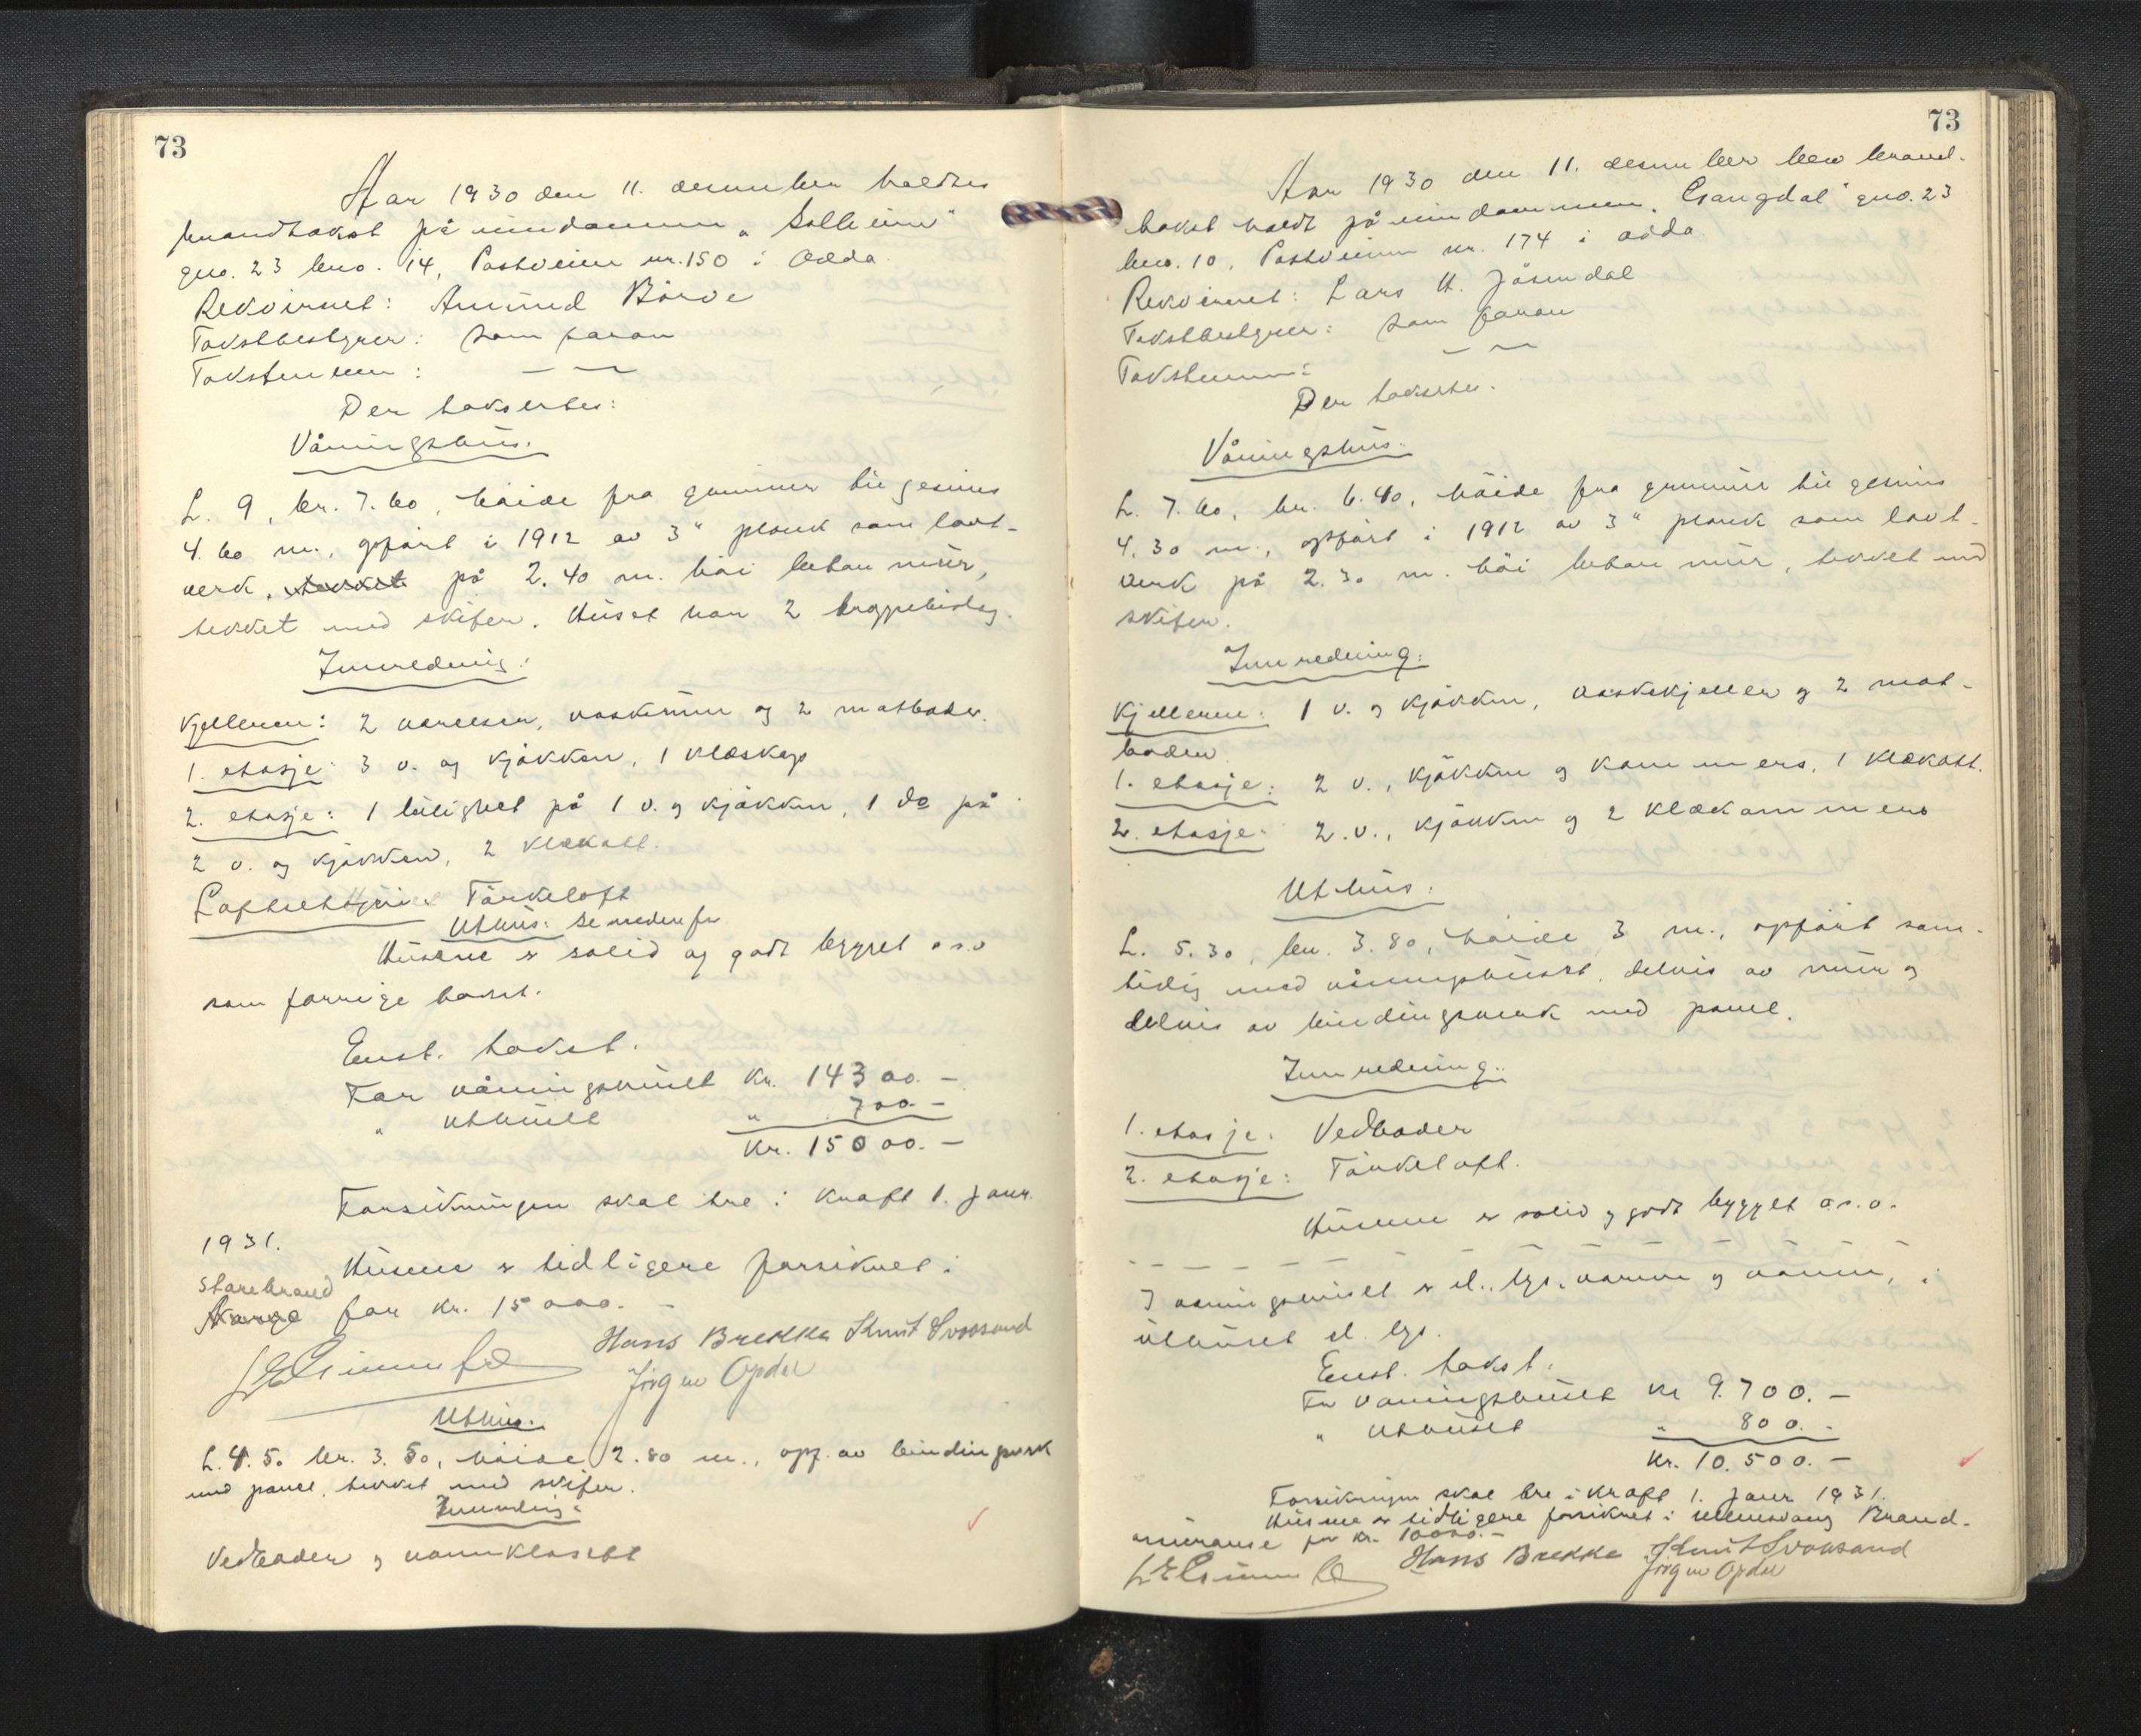 73
Aar 1930 den 11. desember holdtes
brandtakst på eiendommen „Solheim"
gno. 23 bno. 14, Postveien nr. 150 i Odda.
Rekvirent: Amund Börve
Takstbestyrer: som foran
Takstmenn: — 〃 —
Der taksertes:
Våningshus.
L. 9, br. 7.60, höide fra grunnmur til gesims
4.60 m., opfört i 1912 av 3" plank som lavt-
verk, tekket på 2.40 m. höi betonmur,
tekket med skifer. Huset har 2 trappebislag.
Innredning:
Kjelleren: 2 værelser, vaskerum og 2 matboder.
1. etasje: 3 v. og kjökken, 1 klæskap
2. etasje: 1 leilighet på 1 v. og kjökken, 1 do på
2 v. og kjökken, 2 klækott.
Loftsetasje: Törkeloft
Uthus: se nedenfor
Husene er solid og godt bygget o.s.v
som forrige takst.
Enst. takst.
For våningshuset Kr. 14300.-
" uthuset " 700.-
Kr. 15000.-
Forsikringen skal tre i kraft 1. janr.
1931.
Husene er tidligere forsikret i
Storebrand
Norge for kr. 15000.-
Hans Brekke Knut Svoosand
Jörgen Opdal
Uthus.
L. 4.50 br. 3.50, höide 2.80 m., opf. av bindingsverk
med panel, tekket med skifer.
Innredning:
Vedboder og vannklosett
73
Aar 1930 den 11. desember blev brand-
takst holdt på eiendommen „Gangdal" gno. 23
bno. 10, Postveien nr. 174 i Odda.
Rekvirent: Lars H. Jösendal
Takstbestyrer: som foran
Takstmenn: — 〃 —
Der takserte.
Våningshus:
L. 7.60, br. 6.40, höide fra grunnmur til gesims
4.30 m., opfört i 1912 av 3" plank som lavt-
verk på 2.30 m. höi betonmur, tekket med
skifer.
Innredning:
Kjelleren: 1 v. og kjökken, vaskekjeller og 2 mat-
boder
1. etasje: 2 v., kjökken og kammers, 1 klækott.
2. etasje: 2 v., kjökken og 2 klækammers
Uthus:
L. 5.30, br. 3.80, höide 3 m., opfört sam-
tidig med våningshuset, delvis av mur og
delvis av bindingsverk med panel.
Innredning:
1. etasje: Vedboder
2. etasje: Törkeloft.
Husene er solid og godt bygget o.s.v.
— — — — — — — — — —
I våningshuset er el. lys, varme og vann, i
uthuset el. lys.
Enst. takst.
For våningshuset Kr 9.700.-
" uthuset " 800.-
Kr. 10.500.-
Forsikringen skal tre i kraft 1. janr 1931.
Husene er tidligere forsikret i Ullensvang Brand-
assuranse for kr. 10000.-
Hans Brekke Knut Svoosand
Jörgen Opdal